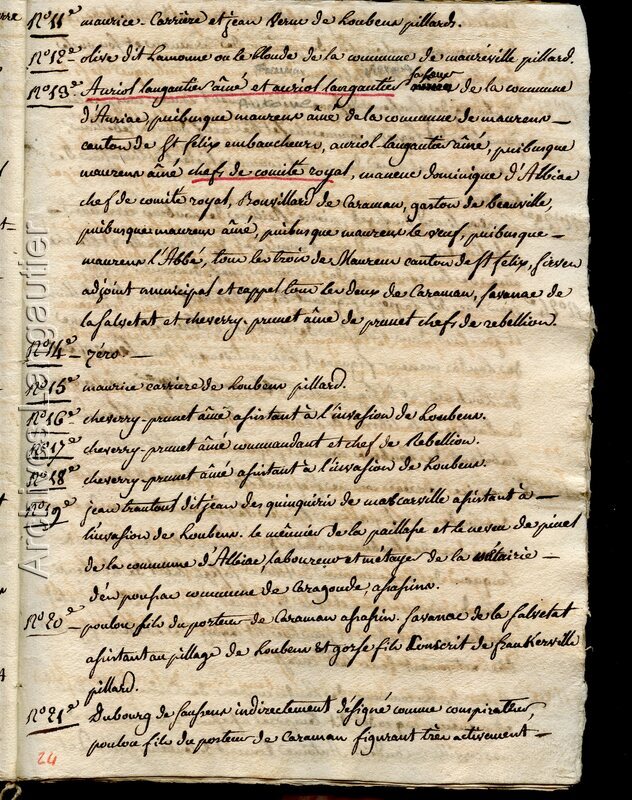 N°11e maurice Carrière et jean Verne de Loubens pillards.
N°12e olive dit Lamonne ou le blonde de la commune de mauréville pillard.
N°13e Auriol Laugautier âiné et auriol Laugautier de la commune
d'Auriac, puibusque maurens âiné de la commune de maurens —
canton de St felix embaucheurs, auriol Laugautier âiné, puibusque
maurens âiné chefs de comité royal, dominique d'Albiac
chef de comité royal, Bouvillard de Caraman, gaston de beauville,
puibusque maurens âiné, puibusque maurens le veuf, puibusque —
maurens l'Abbé, tous les trois de Maurens canton de St felix,
adjoint municipal et cappel tous les deux de Caraman, Savanac de
la Salvetat et cheverry-prunet âiné de prunet chefs de rebellion.
N°14e — zéro —
N°15e maurice carriere de Loubens pillard.
N°16e cheverry-prunet âiné assistant à l'invasion de Loubens.
N°17e cheverry-prunet âiné commandant et chef de Rebellion.
N°18e cheverry-prunet âiné assistant à l'invasion de Loubens.
N°19e jean trantoul dit jean des quinquiris de mascarville assistant à —
l'invasion de Loubens. le mêunier de la paillasse et le neveu de pinet
de la commune d'Albiac, laboureur et métayer de la métairie —
d'en poussac commune de Caragoude, assassins.
N°20e poulou fils du porteur de Caraman assassin. Savanac de la Salvetat
assistant au pillage de Loubens et gorsse fils Conscrit de frankerville
pillard.
N°21e Dubourg de Saussens indirectement désigné comme conspirateur,
poulou fils du porteur de Caraman figurant très activement —
24
Archives Langautier